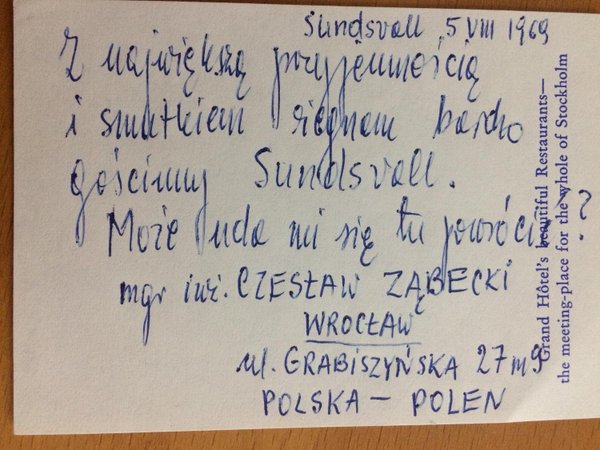 Sundsvall 5 VIII 1969
Z największą przyjemnością
i smutkiem żegnam bardzo
gościnny Sundsvall.
Może uda mi się tu powrócić?
mgr inż. CZESŁAW ZĄBECKI
WROCŁAW
ul. GRABISZYŃSKA 27 m 9
POLSKA — POLEN
Grand Hôtel's beautiful Restaurants—
the meeting-place for the whole of Stockholm